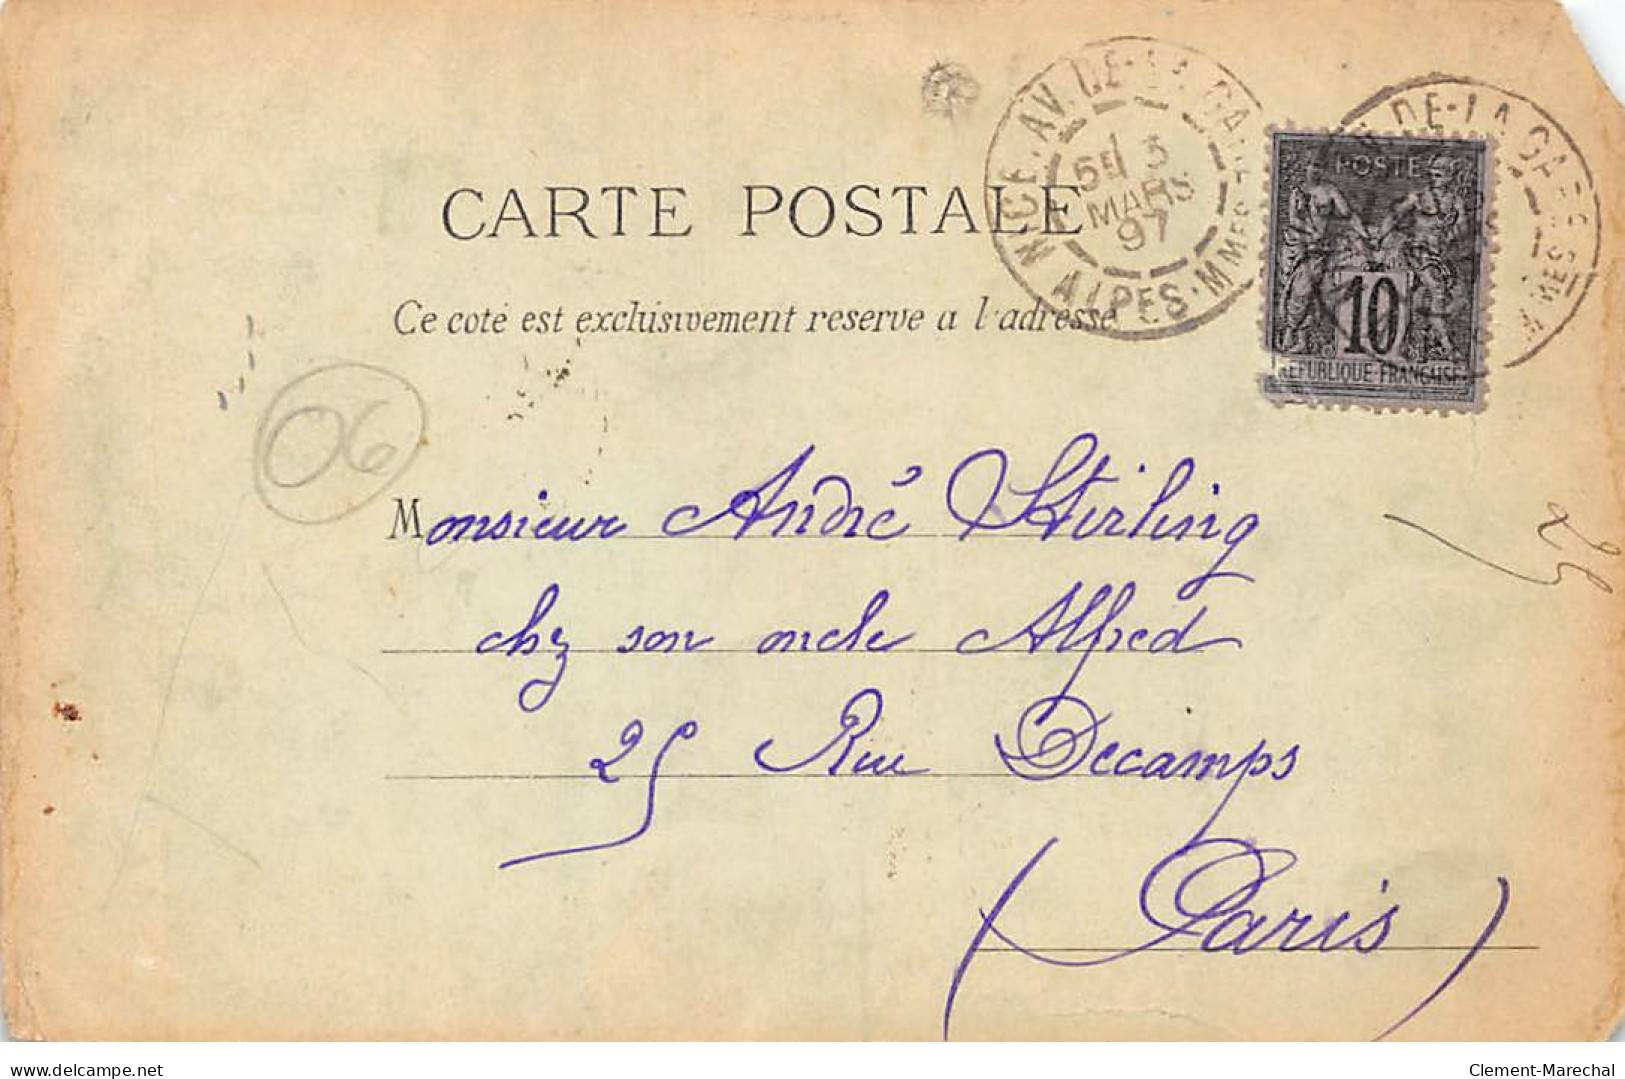 NICE. AV. DE-LA GARE
5E 3
MARS
97
ALPES-MMES
DE-LA GARE
MMES
POSTE
10
REPUBLIQUE-FRANÇAISE
CARTE POSTALE
Ce coté est exclusivement reserve a l'adresse
06
Monsieur André Stirling
chez son oncle Alfred
25 Rue Decamps
(Paris)
25
delcampe.net
Clement-Marechal